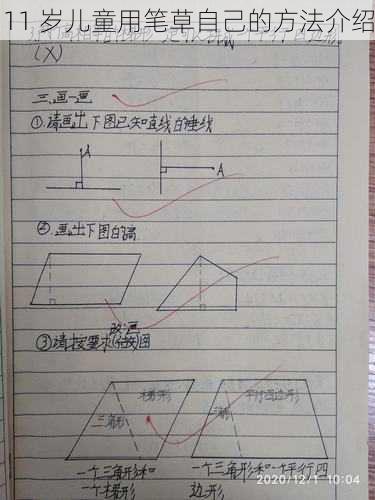 11 岁儿童用笔草自己的方法介绍
(X)
三.画一画
①.请画出下图已知直线的垂线
A
A
②.画出下图的高
改:画
③请按要求(作改)图
三角形
梯形
三角形
平行四边形
一个三角形和
一个梯形
一个三角形和一个平行四
边形
2020/12/1 10:04